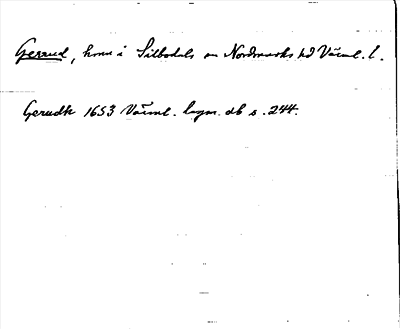 Gerrud, hmn i Silbodals sn Nordmarks hd Värml. l.
Gerudh 1653 Värml. lagm. db s. 244.